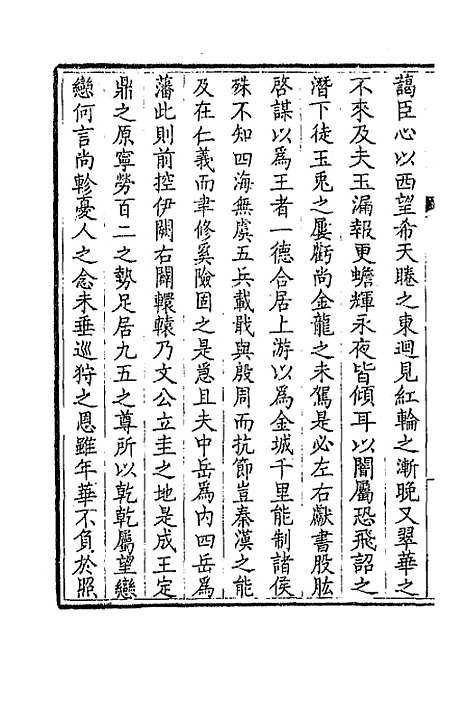 藹臣心以西望希天睠之東迴見紅輪之漸晚又翠華之
不來及夫玉漏報更蟾輝永夜皆傾耳以闇屬恐飛詔之
潛下徒玉兎之屢虧尚金龍之未駕是必左右獻書股肱
啓謀以爲王者一德合居上游以爲金城千里能制諸侯
殊不知四海無虞五兵載戢與殷周而抗節豈秦漢之能
及在仁義而聿修奚險固之是怠且夫中岳爲內四岳爲
藩此則前控伊闕右闢轘轅乃文公立圭之地是成王定
鼎之原寧勞百二之勢足居九五之尊所以乾乾屬望戀
戀何言尚軫憂人之念未垂巡狩之恩雖年華不負於照